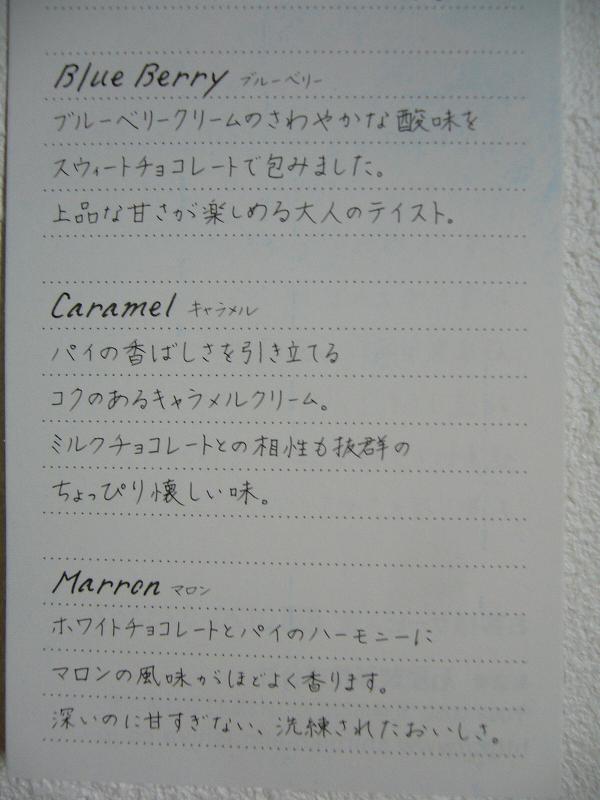 Blue Berry ブルーベリー
ブルーベリークリームのさわやかな酸味を
スウィートチョコレートで包みました。
上品な甘さが楽しめる大人のテイスト。
Caramel キャラメル
パイの香ばしさを引き立てる
コクのあるキャラメルクリーム。
ミルクチョコレートとの相性も抜群の
ちょっぴり懐しい味。
Marron マロン
ホワイトチョコレートとパイのハーモニーに
マロンの風味がほどよく香ります。
深いのに甘すぎない、洗練されたおいしさ。